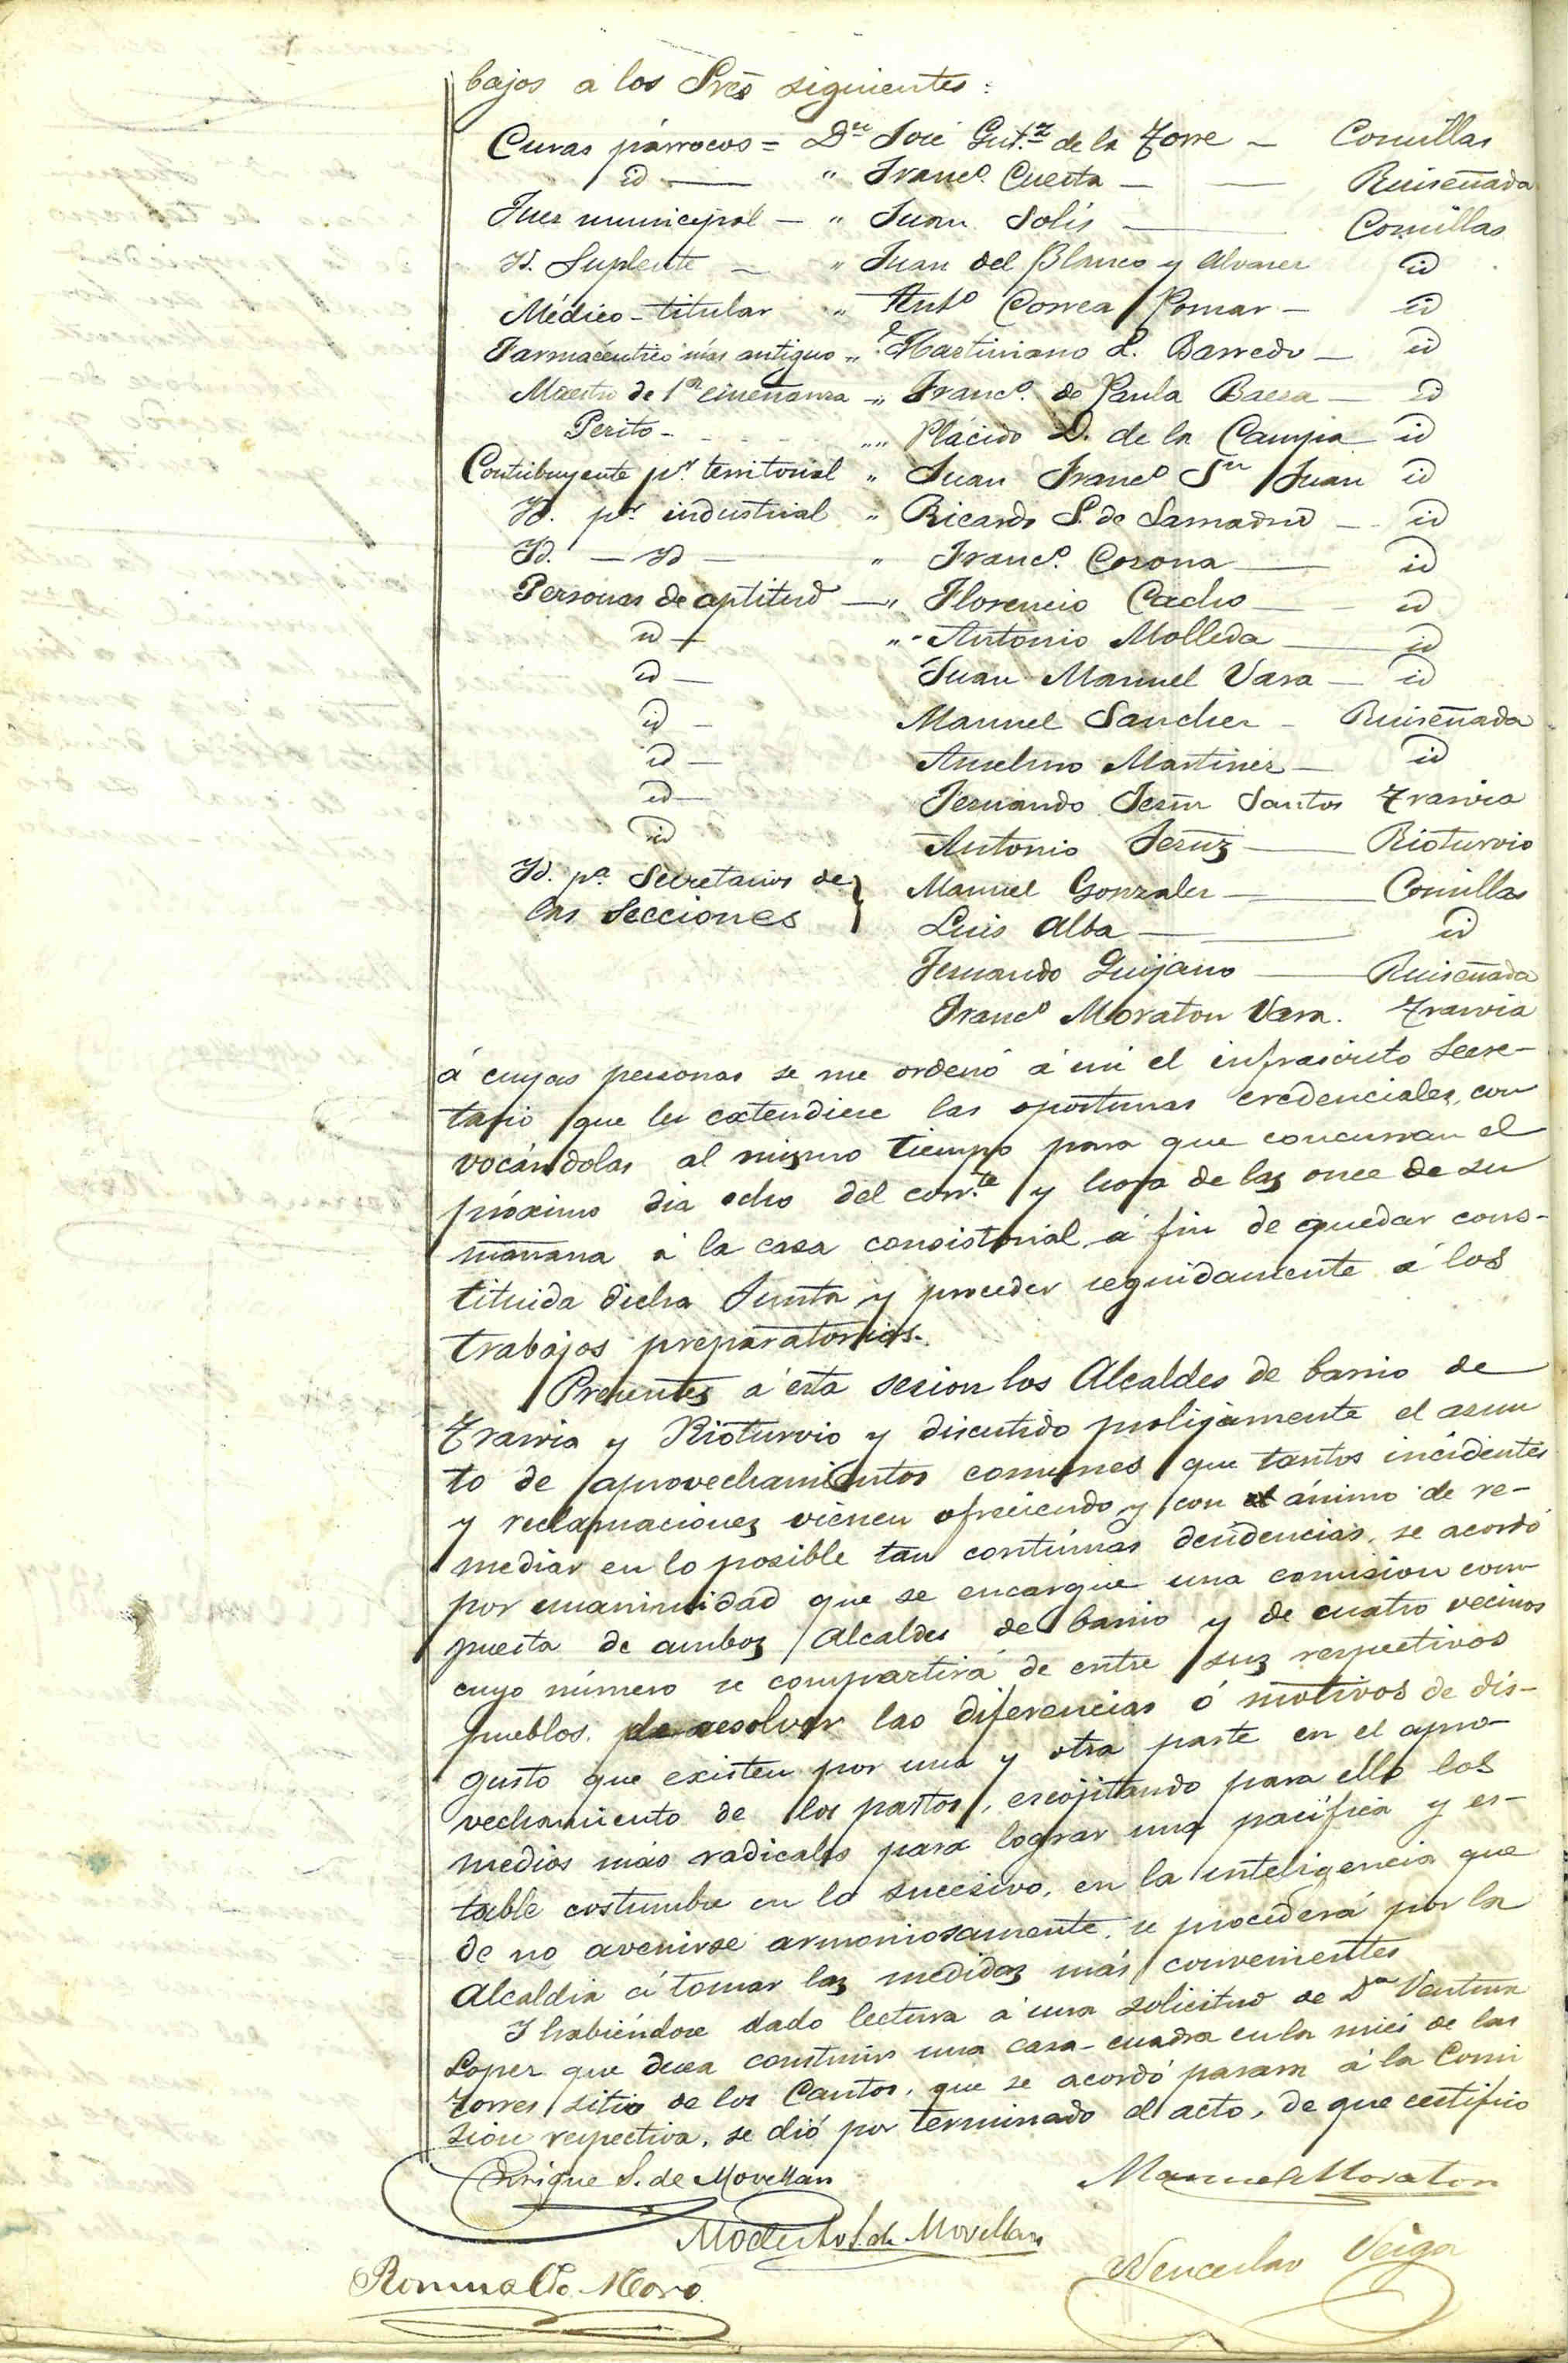 bajos a los Sres siguientes:
Curas párrocos = Dn José Gut.z de la Torre - Comillas
id — " Franco. Cuesta — Ruiseñada
Juez municipal — " Juan Solís — Comillas
Id. Suplente — " Juan del Blanco y Alvarez id
Médico-titular " Anto Correa Pomar — id
Farmacéutico más antiguo " Martiniano L. Barredo — id
Maestro de 1a enseñanza — " Franco. de Paula Baeza — id
Perito - - - - " Plácido D. de la Campa id
Contribuyente pr. territorial " Juan Franco Sn Juan id
Id. pr. industrial " Ricardo S. de Samadrid — id
Id. — Id — " Franco. Corona — id
Personas de aptitud — " Florencio Cacho — id
id — " Antonio Molleda — id
id — Juan Manuel Vara — id
id — Manuel Sanchez — Ruiseñada
id — Anselmo Martinez — id
id — Fernando Santos Trasvia
id Antonio — Rioturvio
Id. pa. Secretarios de } Manuel Gonzalez — Comillas
las Secciones Luis Alba — id
Fernando Quijano — Ruiseñada
Franco Moraton Vara. Trasvia
á cuyas personas se me ordenó á mi el infrascrito Secre-
tario que les extendiese las oportunas credenciales, con
vocándolas al mismo tiempo para que concurran el
próximo dia ocho del corr.te y hora de las once de su
mañana á la casa consistorial á fin de quedar cons-
tituida dicha Junta y proceder seguidamente á los
trabajos preparatorios.
Presentes á esta sesion los Alcaldes de barrio de
Trasvia y Rioturvio y discutido prolijamente el asun
to de aprovechamientos comunes que tantos incidentes
y reclamaciones vienen ofreciendo y con el ánimo de re-
mediar en lo posible tan contínuas desidencias, se acordó
por unanimidad que se encargue una comision com-
puesta de ambos Alcaldes de barrio y de cuatro vecinos
cuyo número se compartirá de entre sus respectivos
pueblos, de resolver las diferencias ó motivos de dis-
gusto que existen por una y otra parte en el apro-
vechamiento de los pastos, escojitando para ello los
medios más radicales para lograr una pacífica y es-
table costumbre en lo sucesivo, en la inteligencia que
de no avenirse armoniosamente, se procederá por la
Alcaldia á tomar las medidas más convenientes
Y habiéndose dado lectura á una solicitud de Da Ventura
Lopez que desea construir una casa-cuadra en la mies de las
Torres sitio de los Cantos, que se acordó pasara á la Comi
sion respectiva, se dió por terminado el acto, de que certifico
Enrique S. de Movellan Manuel Moraton
Modesto S. de Movellan
Romualdo Moro. Wenceslao Veiga